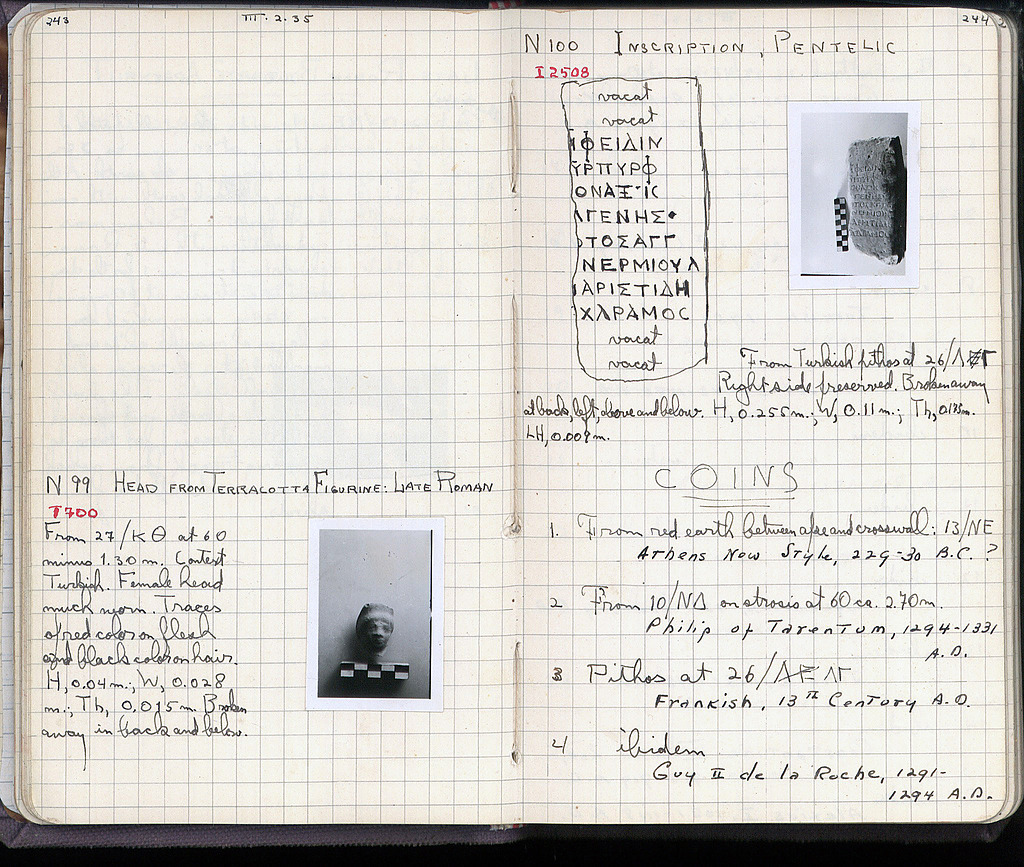 243
III. 2. 35
N 99 HEAD FROM TERRACOTTA FIGURINE: LATE ROMAN
T700
From 27/ΚΘ at 60
minus 1.30 m. Context
Turkish. Female head
much worn. Traces
of red color on flesh
and black color on hair.
H, 0.04 m.; W, 0.028
m.; Th, 0.015 m. Broken
away in back and below.
244
N 100 INSCRIPTION, PENTELIC
I 2508
vacat
vacat
ΙΦΕΙΔΙΝ
ΥΡΠΥΡΦ
ΟΝΑΞΙΣ
ΛΓΕΝΗΣ
ΤΟΣΑΓΓ
ΝΕΡΜΙΟΥΛ
ΙΑΡΙΣΤΙΔΗ
ΧΛΡΑΜΟΣ
vacat
vacat
From Turkish pithos at 26/
Right side preserved. Broken away
at back, left, above and below. H, 0.255 m.; W, 0.11 m.; Th, 0.135m.
LH, 0.009 m.
COINS
1. From red earth between apse and crosswall: 13/ΝΕ
ATHENS NEW STYLE, 229-30 B.C. ?
2 From 10/ΝΔ on stosis at 60 ca. 2.70 m.
Philip of Tarentum, 1294-1331
A.D.
3 Pithos at 26/
Frankish, 13TH Century A.D.
4 ibidem
Guy II de la Roche, 1291-
1294 A.D.